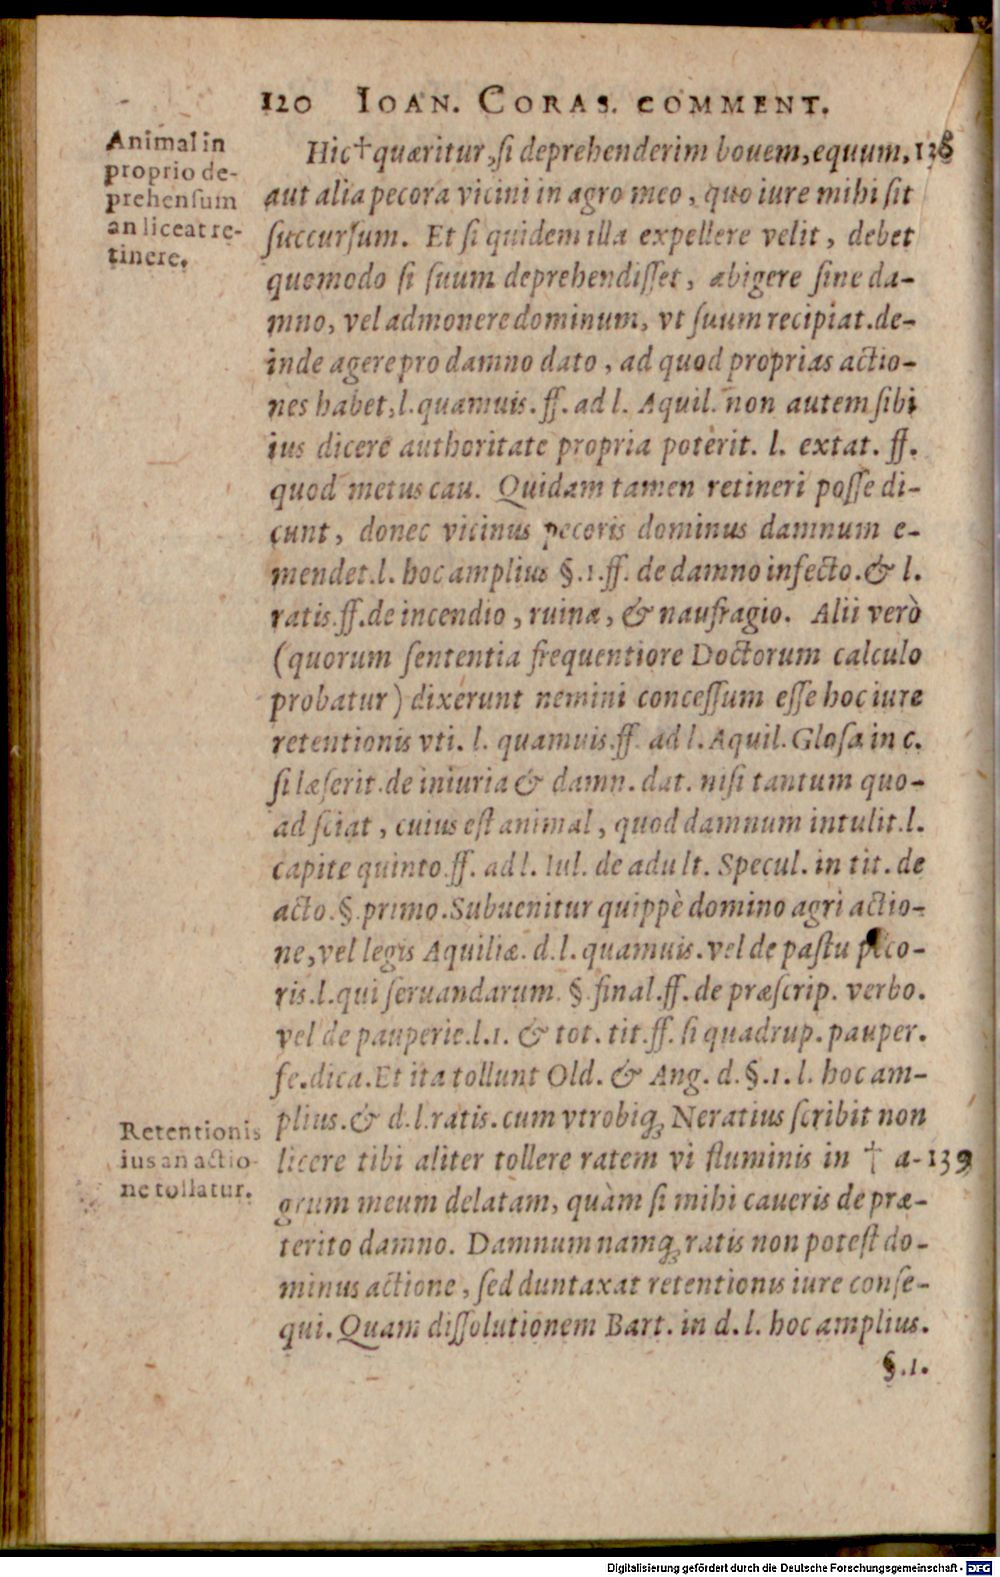 120 IOAN. CORAS. COMMENT.
Animal in
proprio de-
prehensum
an liceat re-
tinere.
Hic † quæritur, si deprehenderim bouem, equum, 138
aut alia pecora vicini in agro meo, quo iure mihi sit
succursum. Et si quidem illa expellere velit, debet
quomodo si suum deprehendisset, abigere sine da-
mno, vel admonere dominum, vt suum recipiat. de-
inde agere pro damno dato, ad quod proprias actio-
nes habet, l. quamuis. ff. ad l. Aquil. non autem sibi
ius dicere authoritate propria poterit. l. extat. ff.
quod metus cau. Quidam tamen retineri posse di-
cunt, donec vicinus pecoris dominus damnum e-
mendet. l. hoc amplius §.1. ff. de damno infecto. & l.
ratis. ff. de incendio, ruina, & naufragio. Alii verò
(quorum sententia frequentiore Doctorum calculo
probatur) dixerunt nemini concessum esse hoc iure
retentionis vti. l. quamuis. ff. ad l. Aquil. Glosa in c.
si læserit. de iniuria & damn. dat. nisi tantum quo-
ad sciat, cuius est animal, quod damnum intulit. l.
capite quinto. ff. ad l. Iul. de adult. Specul. in tit. de
acto. §. primo. Subuenitur quippè domino agri actio-
ne, vel legis Aquiliæ. d. l. quamuis. vel de pastu peco-
ris. l. qui seruandarum. §. final. ff. de præscrip. verbo.
vel de pauperie. l. 1. & tot. tit. ff. si quadrup. pauper.
fe. dica. Et ita tollunt Old. & Ang. d. §. 1. l. hoc am-
plius. & d. l. ratis. cum vtrobiq; Neratius scribit non
Retentionis
ius an actio-
ne tollatur.
licere tibi aliter tollere ratem vi fluminis in † a- 139
grum meum delatam, quàm si mihi caueris de præ-
terito damno. Damnum namq; ratis non potest do-
minus actione, sed duntaxat retentionis iure conse-
qui. Quam dissolutionem Bart. in d. l. hoc amplius.
§. 1.
Digitalisierung gefördert durch die Deutsche Forschungsgemeinschaft - DFG